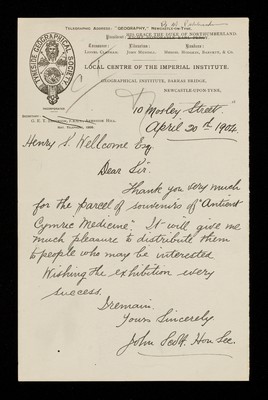 Telegraphic Address: "GEOGRAPHY," Newcastle-on-Tyne.
President: HIS GRACE THE DUKE OF NORTHUMBERLAND.
TYNESIDE GEOGRAPHICAL SOCIETY
LOCAL CENTRE OF THE IMPERIAL INSTITUTE.
GEOGRAPHICAL INSTITUTE, BARRAS BRIDGE,
NEWCASTLE-UPON-TYNE,
10 Mosley Street
April 20th 1904.
Henry S. Wellcome Esq
Dear Sir.
Thank you very much
for the parcel of souvenirs of "Antient
Cymric Medicine". It will give me
much pleasure to distribute them
to people who may be interested
Wishing the exhibition every
success.
I remain.
Yours Sincerely
John Hon. Sec.